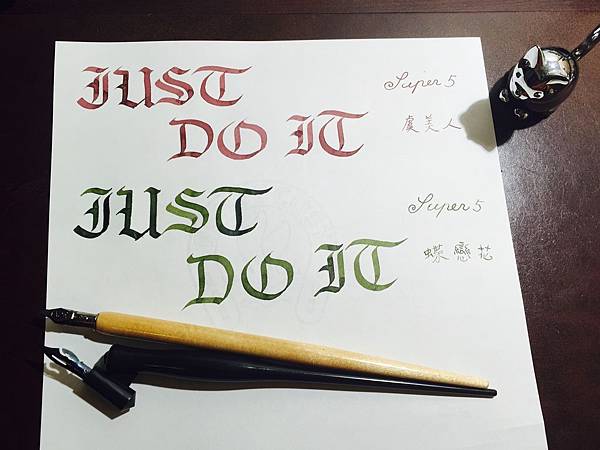 JUST
DO IT
Super 5
虞美人
JUST
DO IT
Super 5
蝶戀花